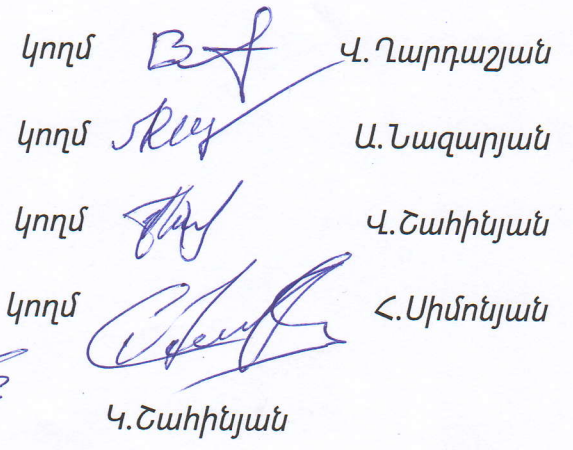 կողմ Վ.Ղարդաշյան
կողմ Ա.Նազարյան
կողմ Վ.Շահինյան
կողմ Հ.Սիմոնյան
Կ.Շահինյան